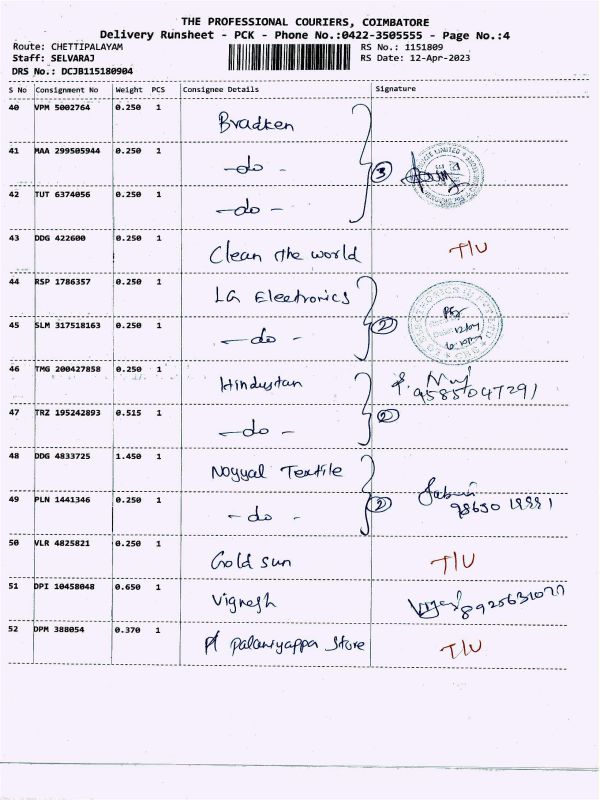 THE PROFESSIONAL COURIERS, COIMBATORE
Delivery Runsheet - PCK - Phone No.:0422-3505555 - Page No.:4
Route: CHETTIPALAYAM RS No.: 1151809
Staff: SELVARAJ RS Date: 12-Apr-2023
DRS No.: DCJB115180904
S No Consignment No Weight PCS Consignee Details Signature
40 VPM 5002764 0.250 1 Bradken
41 MAA 299505944 0.250 1 -do- 3
42 TUT 6374056 0.250 1 -do-
43 DDG 422600 0.250 1 Clean the world T/U
44 RSP 1786357 0.250 1 LG Electronics
45 SLM 317518163 0.250 1 -do- 2
46 TMG 200427858 0.250 1 Hindustan 9585047291
47 TRZ 195242893 0.515 1 -do- 2
48 DDG 4833725 1.450 1 Noyyal Textile
49 PLN 1441346 0.250 1 -do- 2
50 VLR 4825821 0.250 1 Gold sun T/U
51 DPI 10458048 0.650 1 Vignesh
52 DPM 388054 0.370 1 Pl Palaniyappa Store T/U